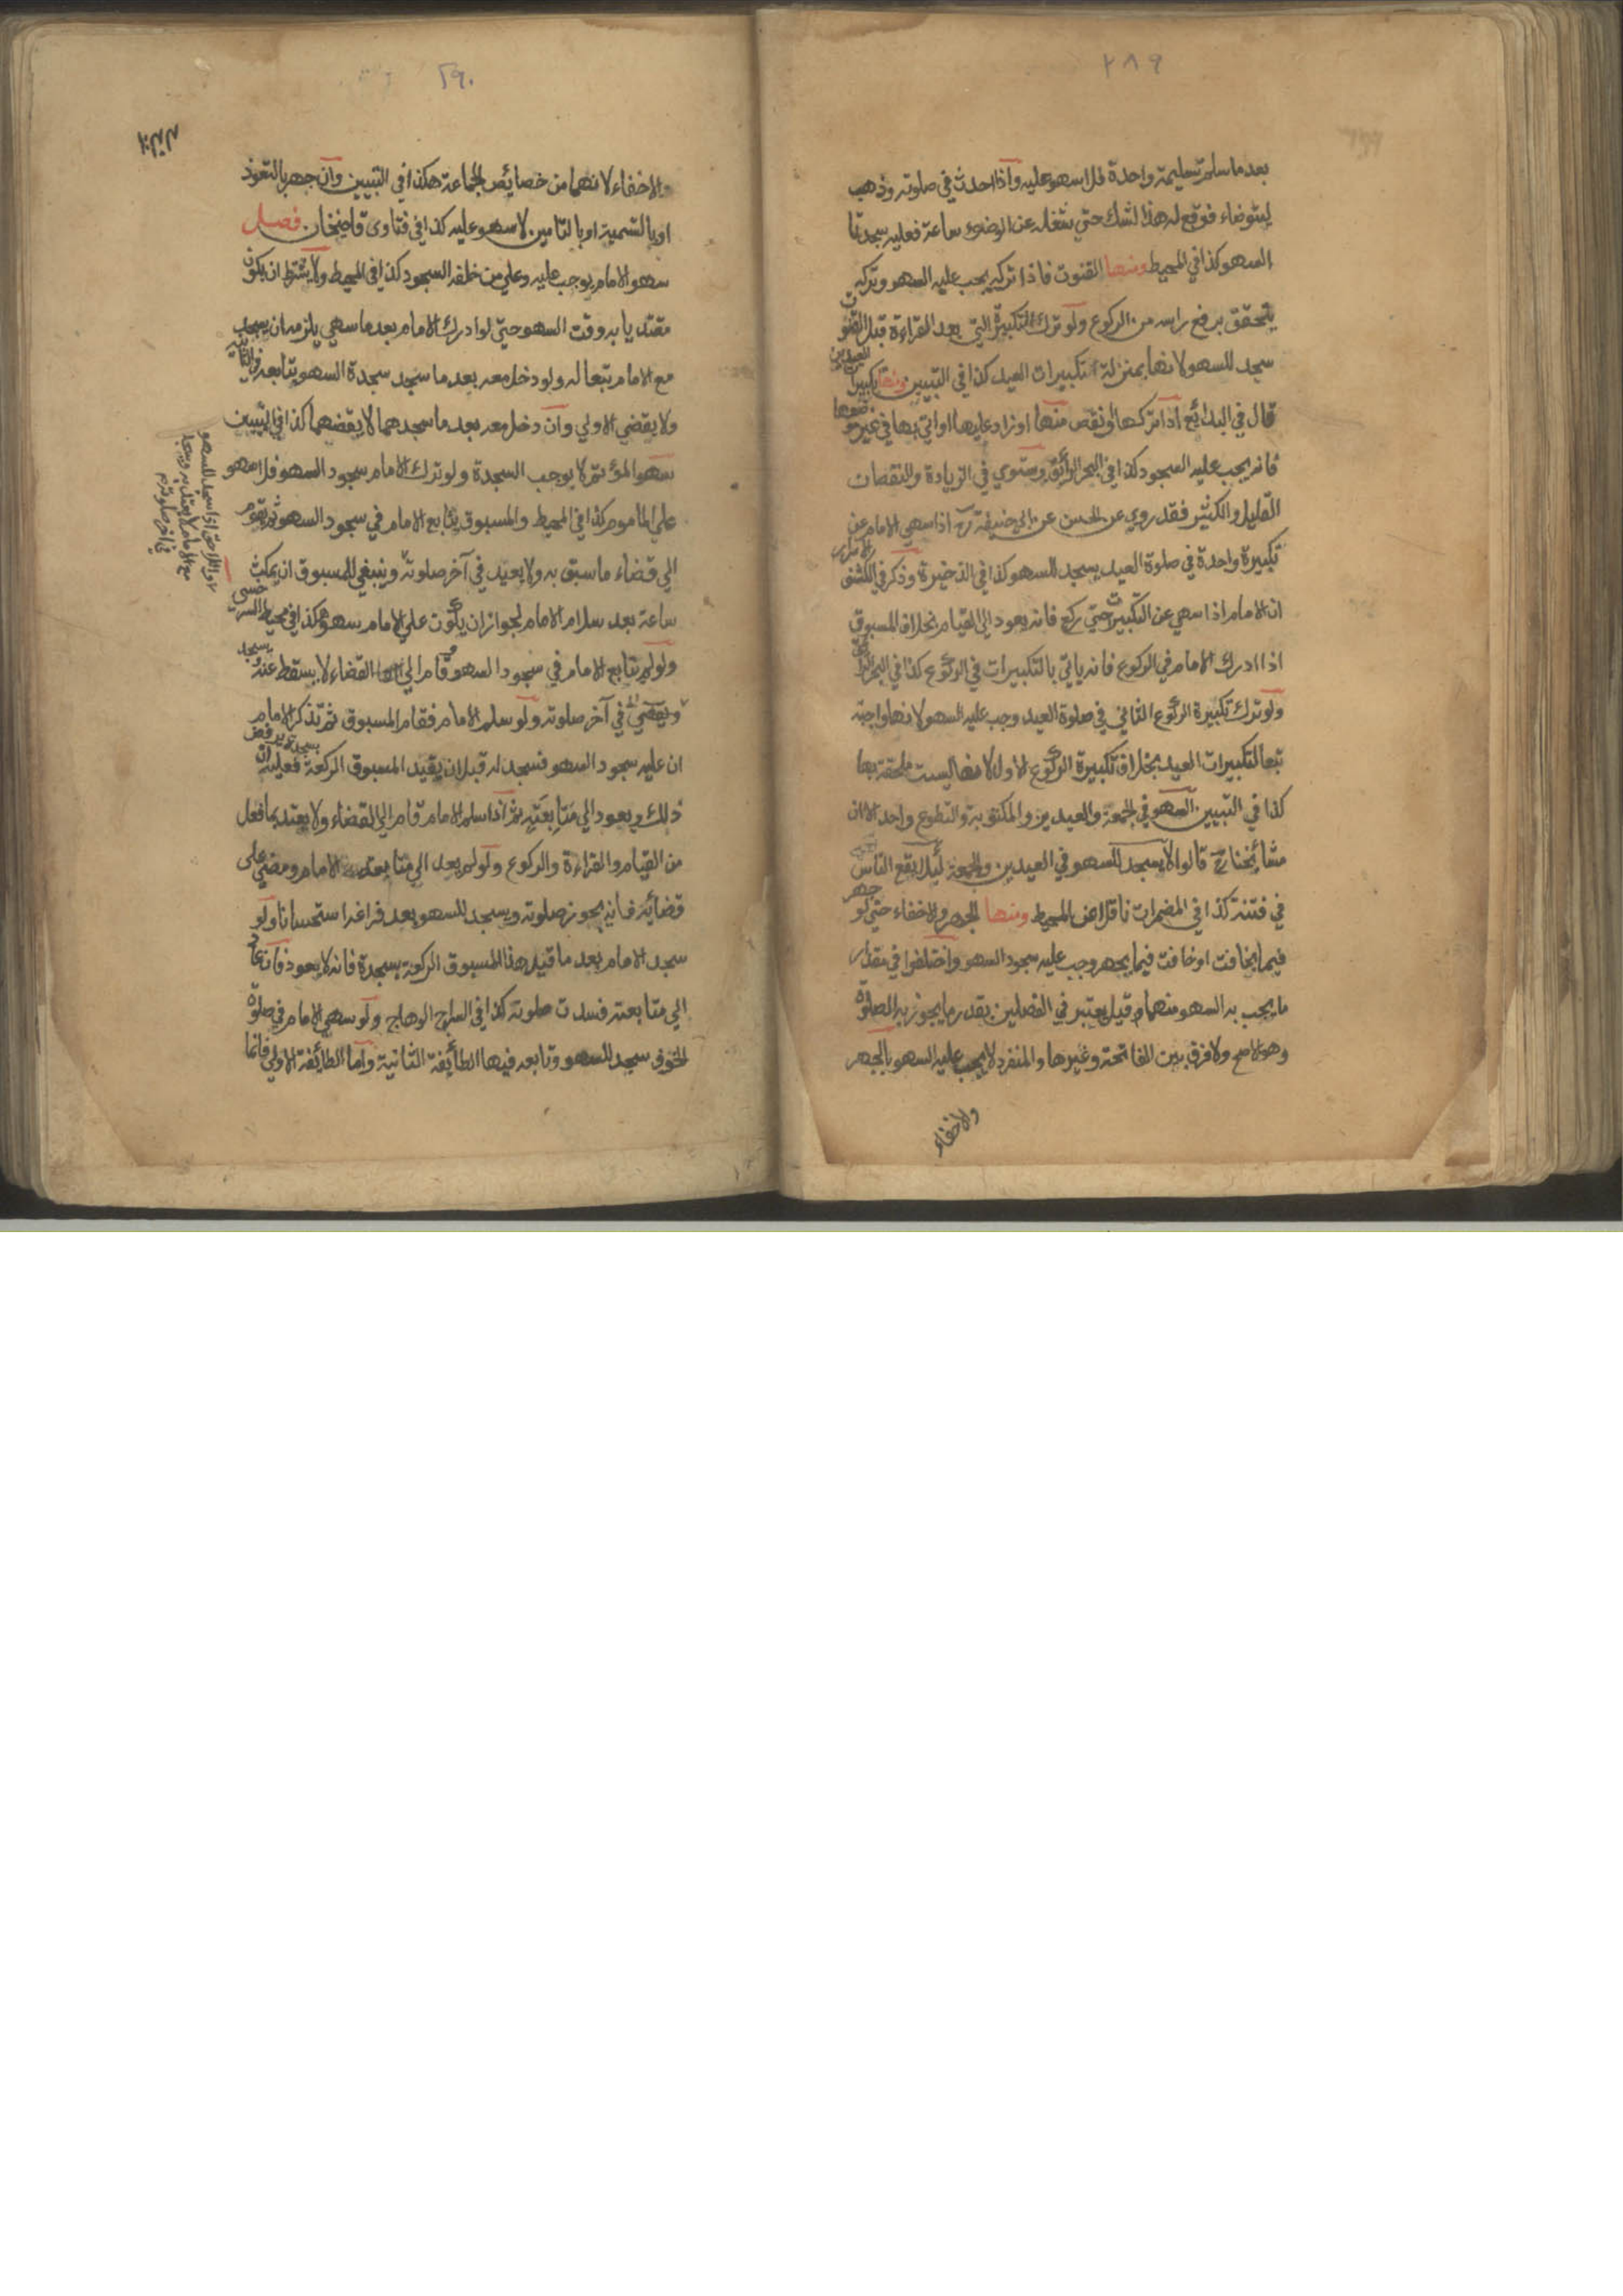 ٢٨٩
بعد ما سلم تسليمة واحدة فلا سهو عليه وآذا احدث في صلوته وذهب
ليتوضاء فوقع له هذا لشك حتي شغله عن الوضوء ساعة فعليه سجدتا
السهو كذا في المحيط ومنها القنوت فاذا تركه يجب عليه السهو وتركه
يتحقق برفع راسه من الركوع ولو ترك التكبيرة التي بعد القراءة قبل القنوت
سجد للسهو لانها بمنزلة تكبيرات العيد كذا في التبيين ومنها تكبيرات العيدين
قال في البدائع اذا تركها او نقص منها او زاد عليها او اتي بها في غير موضعها
فانه يجب عليه السجود كذا في البحر الرائق ويستوي في الزيادة والنقصان
القليل والكثير فقد روي عن الحسن عن ابي حنيفة رح اذا سهي الامام عن
تكبيرة واحدة في صلوة العيد يسجد للسهو كذا في الذخيرة وذكر في الكشف الاسرار
ان الامام اذا سهي عن التكبيرات حتي ركع فانه يعود الي القيام بخلاف المسبوق
اذا ادرك الامام في الركوع فانه ياتي بالتكبيرات في الركوع كذا في البحر الرائق
ولو ترك تكبيرة الركوع الثاني في صلوة العيد وجب عليه السهو لانها واجبة
تبعا لتكبيرات العيد بخلاف تكبيرة الركوع الاول لانها ليست ملحقة بها
كذا في التبيين السهو في الجمعة والعيدين والمكتوبة والتطوع واحد الا ان
مشائخنا رح قالوا لا يسجد للسهو في العيدين والجمعة لئلا يقع الناس
في فتنة كذا في المضمرات ناقلا عن المحيط ومنها الجهر والاخفاء حتي لو جهر
فيما يخافت او خافت فيما يجهر وجب عليه سجود السهو واختلفوا في مقدار
ما يجب به السهو منهما قيل يعتبر في الفصلين بقدر ما يجوز به الصلوة
وهو الاصح ولا فرق بين الفاتحة وغيرها والمنفرد لا يجب عليه السهو بالجهر
والاخفاء
٢٩٠
والاخفاء لانهما من خصائص الجماعة هكذا في التبيين وان جهر بالتعوذ
او بالتسمية او بالتامين لا سهو عليه كذا في فتاوى قاضيخان فصل
سهو الامام يوجب عليه وعلي من خلفه السجود كذا في المحيط ولا يشترط ان يكون
مقتديا به وقت السهو حتي لو ادرك الامام بعد ما سهي يلزمه ان يسجد
مع الامام تبعا له ولو دخل معه بعد ما سجد سجدة السهو يتابعه في الثانية
ولا يقضي الاولي وان دخل معه بعد ما سجدهما لا يقضهما كذا في التبيين
سهو المؤتم لا يوجب السجدة ولو ترك الامام سجود السهو فلا سهو
علي الماموم كذا في المحيط والمسبوق يتابع الامام في سجود السهو ثم يقوم
الي قضاء ما سبق به ولا يعيد في آخر صلوته وينبغي للمسبوق ان يمكث
ساعة بعد سلام الامام لجواز ان يكون علي الامام سهو هكذا في محيط السرخسي
ولو لم يتابع الامام في سجود السهو وقام الي القضاء لا يسقط عنه ويسجد
في آخر صلوته ولو سلم الامام فقام المسبوق ثم تذكر الامام
ان عليه سجود السهو فسجد له قبل ان يقيد المسبوق الركعة بسجدة فعليه ان يرفض
ذلك ويعود الي متابعته ثم اذا سلم الامام قام الي القضاء ولا يعتد بما فعل
من القيام والقراءة والركوع ولو لم يعد الي متابعة الامام ومضي على
قضائه فانه يجوز صلوته ويسجد للسهو بعد فراغه استحسانا ولو
سجد الامام بعد ما قيد هذا المسبوق الركعة بسجدة فانه لا يعود فان عاد
الي متابعته فسدت صلوته كذا في السراج الوهاج ولو سهي الامام في صلوة
الخوف سجد للسهو وتابعه فيها الطائفة الثانية واما الطائفة الاولي فانما
واللاحق اذا سجد للسهو
مع الامام لا يعتد به ويسجد
في آخر صلوته